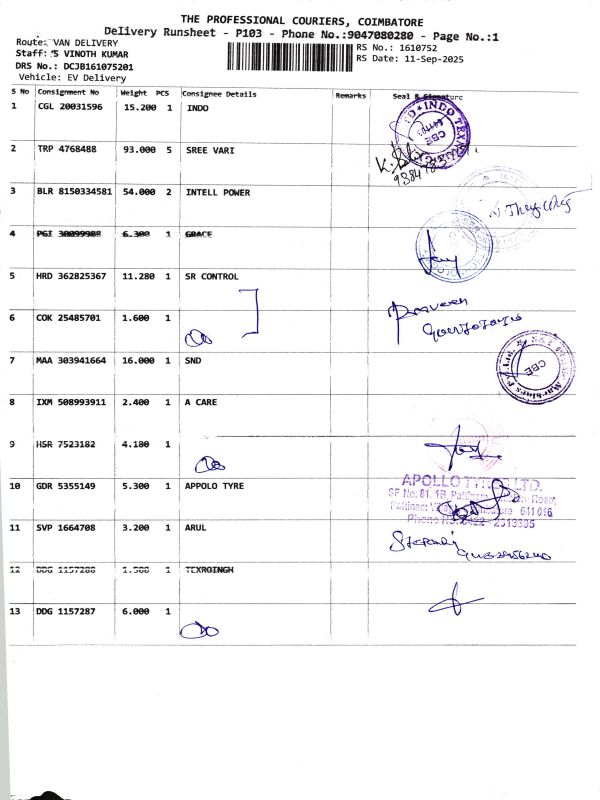 THE PROFESSIONAL COURIERS, COIMBATORE
Delivery Runsheet - P103 - Phone No.:9047080280 - Page No.:1
Route: VAN DELIVERY
Staff: S VINOTH KUMAR
DRS No.: DCJB161075201
Vehicle: EV Delivery
RS No.: 1610752
RS Date: 11-Sep-2025
S No Consignment No Weight PCS Consignee Details Remarks Seal & Signature
1 CGL 20031596 15.200 1 INDO
2 TRP 4768488 93.000 5 SREE VARI
3 BLR 8150334581 54.000 2 INTELL POWER
4 PGI 30099988 6.300 1 GRACE
5 HRD 362825367 11.280 1 SR CONTROL
6 COK 25485701 1.600 1
7 MAA 303941664 16.000 1 SND
8 IXM 508993911 2.400 1 A CARE
9 HSR 7523182 4.180 1
10 GDR 5355149 5.300 1 APPOLO TYRE
APOLLO TYRES LTD.
SF No: 81, 1B, Road,
641 016
Phone No: 0422 - 2313305
11 SVP 1664708 3.200 1 ARUL
12 DDG 1157288 1.500 1
13 DDG 1157287 6.000 1